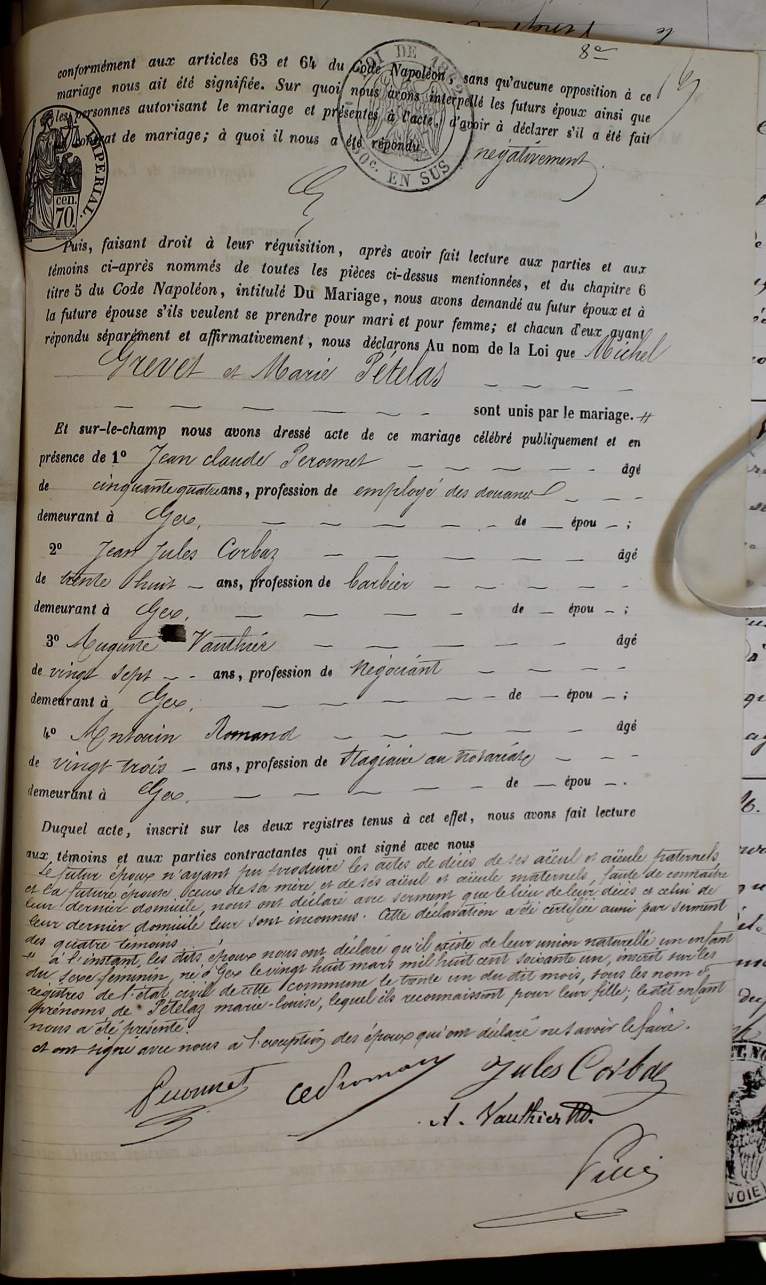 8e
conformément aux articles 63 et 64 du Code Napoléon, sans qu'aucune opposition à ce
mariage nous ait été signifiée. Sur quoi nous avons interpellé les futurs époux ainsi que
les personnes autorisant le mariage et présentes à l'acte, d'avoir à déclarer s'il a été fait
un contrat de mariage; à quoi il nous a été répondu négativement
LOI DE 1862
50c. EN SUS
IMPERIAL.
cen.
70
Puis, faisant droit à leur réquisition, après avoir fait lecture aux parties et aux
témoins ci-après nommés de toutes les pièces ci-dessus mentionnées, et du chapitre 6
titre 5 du Code Napoléon, intitulé Du Mariage, nous avons demandé au futur époux et à
la future épouse s'ils veulent se prendre pour mari et pour femme; et chacun d'eux ayant
répondu séparément et affirmativement, nous déclarons Au nom de la Loi que Michel
Grevet et Marie Pételas
sont unis par le mariage. #
Et sur-le-champ nous avons dressé acte de ce mariage célébré publiquement et en
présence de 1° Jean claude Peronnet âgé
de cinquante quatre ans, profession de employé des douanes
demeurant à Gex, de — épou — ;
2° Jean Jules Corbaz âgé
de trente huit — ans, profession de barbier
demeurant à Gex, de — épou — ;
3° Auguste Vauthier âgé
de vingt sept - - ans, profession de Négociant
demeurant à Gex, de — épou — ;
4° Antonin Romand âgé
de vingt trois — ans, profession de Stagiaire au notariat
demeurant à Gex. de — épou — .
Duquel acte, inscrit sur les deux registres tenus à cet effet, nous avons fait lecture
aux témoins et aux parties contractantes qui ont signé avec nous
Le futur époux n'ayant pu produire les actes de décès de ses aïeul et aïeule paternels
et la future épouse ceux de sa mère et de ses aïeul et aïeule maternels, faute de connaître
leur dernier domicile, nous ont déclaré avec serment que le lieu de leur décès et celui de
leur dernier domicile leur sont inconnus. Cette déclaration a été certifiée aussi par serment
des quatre témoins
# à l'instant, les dits époux nous ont déclaré qu'il existe de leur union naturelle un enfant
du sexe féminin, né à Gex le vingt huit mars mil huit cent soixante un, inscrit sur les
registres de l'état civil de cette commune le trente un du dit mois, sous les nom et
prénoms de Pételaz marie-louise, lequel ils reconnaissent pour leur fille; ledit enfant
nous a été présenté.
et ont signé avec nous à l'exception des époux qui ont déclaré ne savoir le faire.
Peronnet Jules Corbaz
A. Vauthier